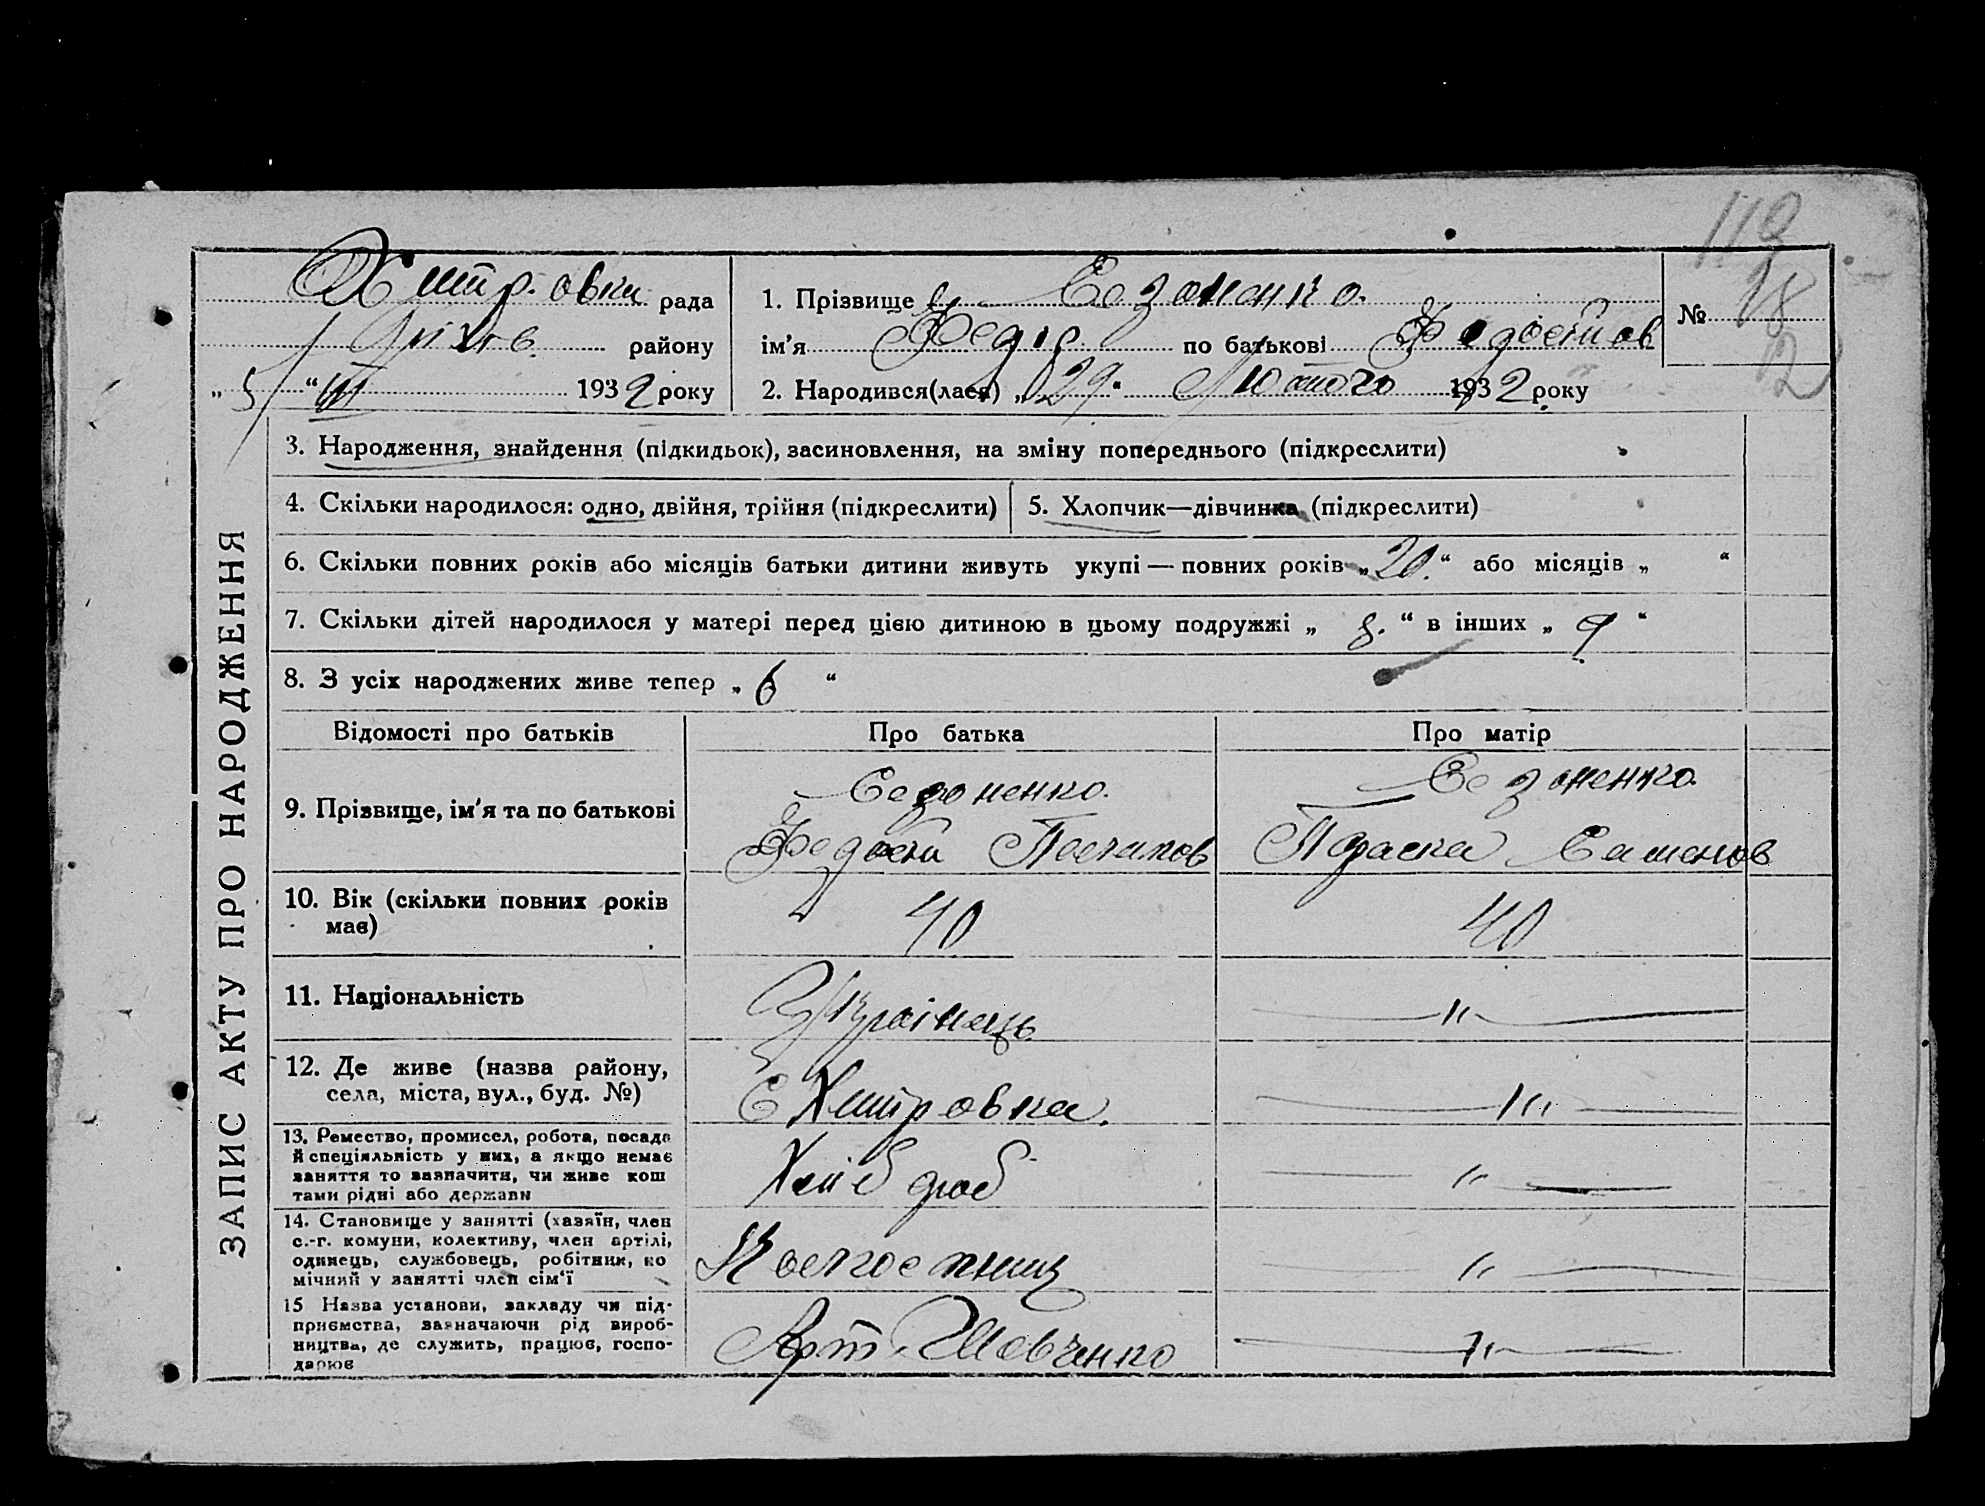 119
Хитровки рада
Оріхів. району
„ 5 “ III 1932 року
1. Прізвище Сезоненко.
ім'я Федір по батькові Федосійов
2. Народився(лася) „ 29 “ Лютого 1932 року
№ 18
12
ЗАПИС АКТУ ПРО НАРОДЖЕННЯ
3. Народження, знайдення (підкидьок), засиновлення, на зміну попереднього (підкреслити)
4. Скільки народилося: одно, двійня, трійня (підкреслити)
5. Хлопчик—дівчинка (підкреслити)
6. Скільки повних років або місяців батьки дитини живуть укупі — повних років „ 20. “ або місяців „ “
7. Скільки дітей народилося у матері перед цією дитиною в цьому подружжі „ 8. “ в інших „ “
8. З усіх народжених живе тепер „ 6 “
Відомості про батьків
Про батька
Про матір
9. Прізвище, ім'я та по батькові
Сезоненко.
Федосій
Сезоненко.
Параска Семенов
10. Вік (скільки повних років
має)
40
40
11. Національність
Українець
—〃—
12. Де живе (назва району,
села, міста, вул., буд. №)
С Хитровка.
—〃—
13. Ремество, промисел, робота, посада
й спеціяльність у них, а якщо немає
заняття то зазначити, чи живе кош
тами рідні або держави
Хліб дроб
—〃—
14. Становище у занятті (хазяїн, член
с.-г. комуни, колективу, член артілі,
одинець, службовець, робітник, по
мічний у занятті член сім'ї
Колгоспниц
—〃—
15 Назва установи, закладу чи під-
приємства, зазначаючи рід вироб-
ництва, де служить, працює, госпо-
дарює
Арт. Шевченко
—〃—